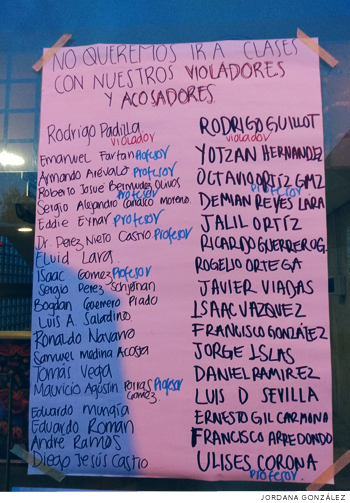 NO QUEREMOS IR A CLASES
CON NUESTROS VIOLADORES
Y ACOSADORES
Rodrigo Padilla
violador
Emanuel Farfan Profesor
Armando Arévalo Profesor
Roberto Josue Bermudez Olivos
Profesor
Sergio Alejandro Canasco moreno
Eddie Eynar Profesor
Dr. Perez Nieto Castro Profesor
Eluid Lara
Isaac Gomez Profesor
Sergio Perez Schjetnan
Bogdan Guerrero Prado
Luis A. Saladino
Ronaldo Navarro
Samuel Medina Acosta
Tomás Vega
Mauricio Agustin Porras Gomez Profesor
Eduardo Munguia
Eduardo Román
Andre Ramos
Diego Jesús Castro
RODRIGO GUILLOT
violador
YOTZAN HERNANDEZ
OCTAVIO ORTÍZ GMZ
Profesor
DEMIAN REYES LARA
JALIL ORTÍZ
RICARDO GUERRERO G.
ROGELIO ORTEGA
JAVIER VIADAS
ISAAC VAZQUEZ
FRANCISCO GONZÁLEZ
JORGE ISLAS
DANIEL RAMIREZ
LUIS D SEVILLA
ERNESTO GIL CARMONA
FRANCISCO ARREDONDO
ULISES CORONA
Profesor
JORDANA GONZÁLEZ